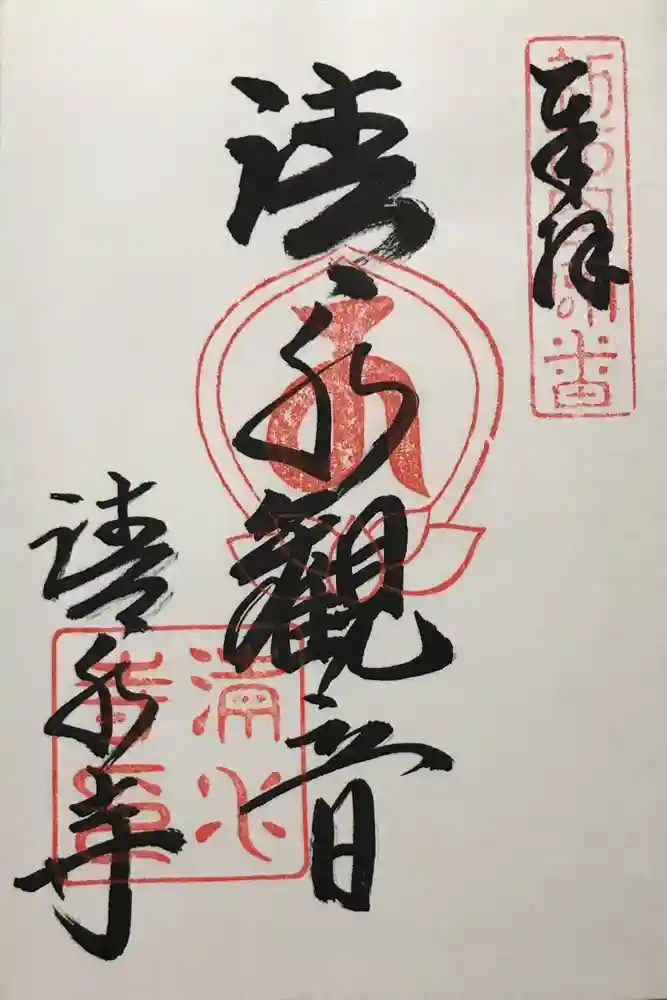 奉拝
清水觀音
清水寺
清水